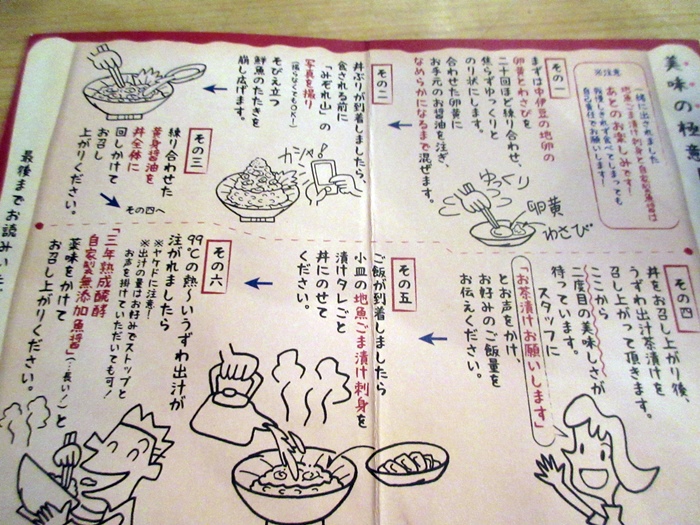 美味の極意
※注意
一緒に出されました
地魚ごま漬け刺身と自家製魚醤は
あとのお楽しみです!
我慢しきれず食べてしまっても
自己責任でお願いします!
その一
まずは中伊豆の地卵の
卵黄とわさびを
二十回ほど練り合わせ、
焦らずゆっくりと
のり状にします。
合わせた卵黄に
お手元のお醤油を注ぎ、
なめらかになるまで混ぜます。
ゆっくり
卵黄
わさび
その二
丼ぶりが到着しましたら、
食される前に
「みぞれ山」の
写真を撮り
(撮らなくてもOK!)
そびえ立つ
鮮魚のたたきを
崩し広げます。
カシャ!
その三
練り合わせた
黄身醤油を
丼全体に
回しかけて
お召し
上がりください。
その四へ
その四
丼をお召し上がり後、
うずわ出汁茶漬けを
召し上がって頂きます。
ここから
二度目の美味しさが
待っています。
スタッフに
「お茶漬けお願いします」
とお声をかけ、
お好みのご飯量を
お伝えください。
その五
ご飯が到着しましたら
小皿の地魚ごま漬け刺身を
漬けタレごと
丼にのせて
ください。
その六
99℃の熱〜いうずわ出汁が
注がれましたら
※ヤケドに注意!
※出汁の量はお好みでストップと
お声を掛けていただいても可!
「三年熟成醗酵
自家製無添加魚醤」(…長い!)と
薬味をかけて
お召し上がりください。
最後までお読みいた